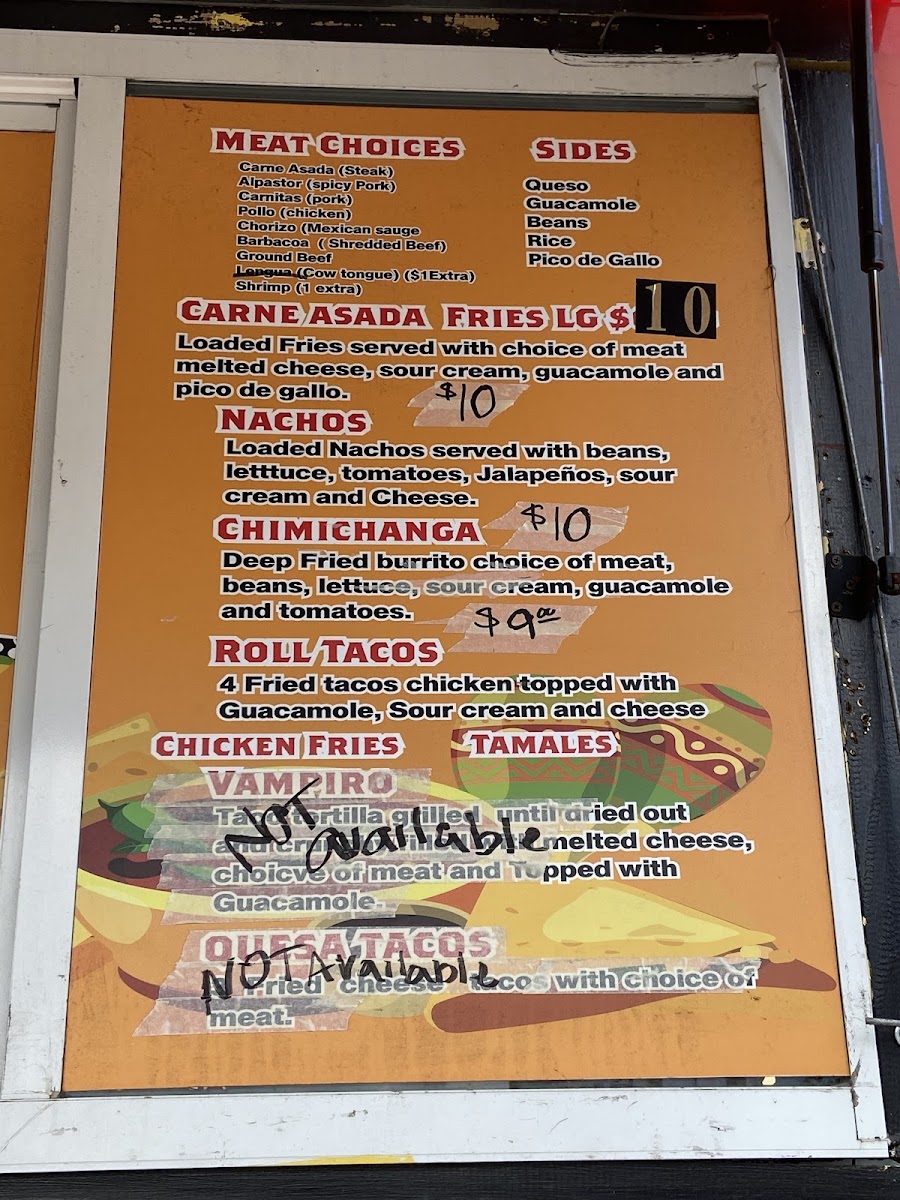 MEAT CHOICES
Carne Asada (Steak)
Alpastor (spicy Pork)
Carnitas (pork)
Pollo (chicken)
Chorizo (Mexican sauge
Barbacoa ( Shredded Beef)
Ground Beef
Lengua (Cow tongue) ($1Extra)
Shrimp (1 extra)
SIDES
Queso
Guacamole
Beans
Rice
Pico de Gallo
CARNE ASADA FRIES LG $10
Loaded Fries served with choice of meat
melted cheese, sour cream, guacamole and
pico de gallo.
NACHOS $10
Loaded Nachos served with beans,
letttuce, tomatoes, Jalapeños, sour
cream and Cheese.
CHIMICHANGA $10
Deep Fried burrito choice of meat,
beans, lettuce, sour cream, guacamole
and tomatoes.
ROLL TACOS $9.00
4 Fried tacos chicken topped with
Guacamole, Sour cream and cheese
CHICKEN FRIES TAMALES
VAMPIRO
NOT available
tortilla grilled until dried out
melted cheese,
choicve of meat and Topped with
Guacamole.
QUESA TACOS
NOT Available
Fried cheese tacos with choice of
meat.